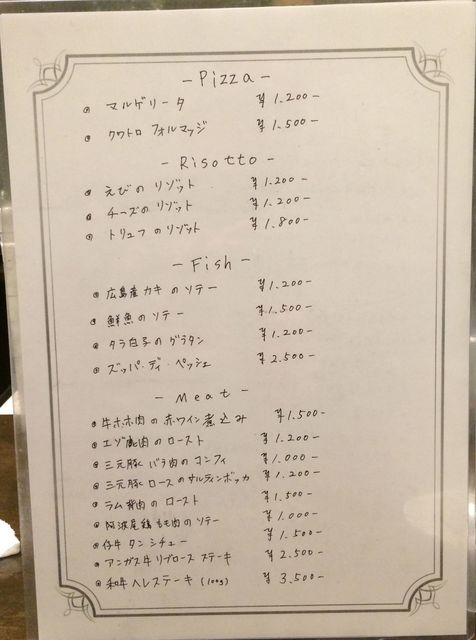 - Pizza -
マルゲリータ ¥1.200-
クワトロ フォルマッジ ¥1.500-
- Risotto -
えびの リゾット ¥1.200-
チーズの リゾット ¥1.200-
トリュフ の リゾット ¥1.800-
- Fish -
広島産 カキ の ソテー ¥1.200-
鮮魚の ソテー ¥1.500-
タラ白子 の グラタン ¥1.200-
ズッパ・ディ・ペッシェ ¥2.500-
- Meat -
牛ホホ肉 の 赤ワイン 煮込み ¥1.500-
エゾ鹿肉 の ロースト ¥1.200-
三元豚 バラ肉の コンフィ ¥1.000-
三元豚 ロースの サルティンボッカ ¥1.200-
ラム 背肉 の ロースト ¥1.500-
阿波尾鶏 もも肉 の ソテー ¥1.000-
仔牛 タン シチュー ¥1.500-
アンガス牛 リブロース ステーキ ¥2.500-
和牛 ヘレステーキ (100g) ¥3.500-